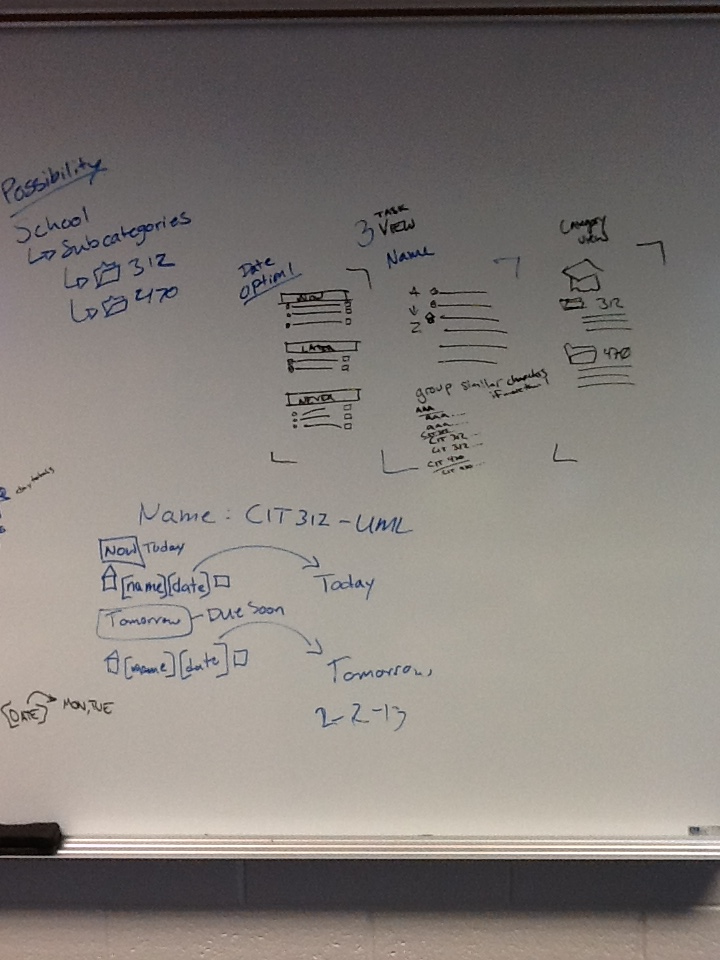 Possibility
School
Subcategories
312
470
Date
Optim!
NOW
LATER
NEVER
3 TASK
VIEW
Name
A
Z
group similar characters
AAA
aaa...
aaa...
CIT 312...
CIT 312...
CIT 470
CIT 470...
Category
View
312
470
Name: CIT312-UML
NOW Today
[name][date]
Today
Tomorrow - Due Soon
[name][date]
Tomorrow,
2-2-13
[DATE] MON, TUE